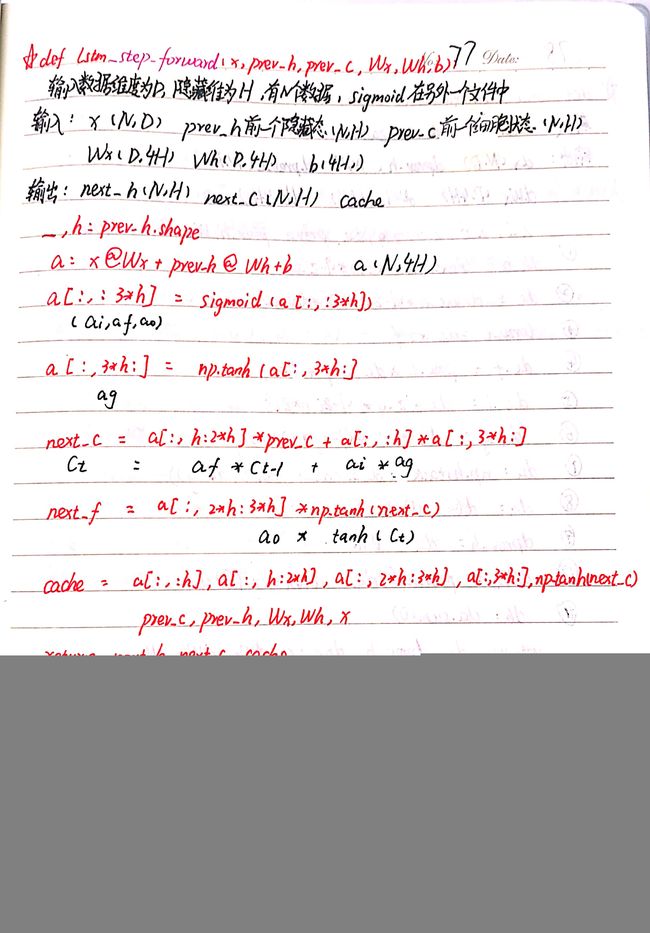 ☆def lstm_step-forward(x, prev-h, prev-c, Wx, Wh, b) 77 Date:
输入数据维度为D, 隐藏维为H, 有N个数据, sigmoid在另外一个文件中
输入: x (N,D) prev_h前一个隐藏态(N,H) prev_c前一个细胞状态(N,H)
Wx(D,4H) Wh(D,4H) b(4H,)
输出: next_h(N,H) next_c(N,H) cache
_, h = prev-h.shape
a: x@Wx + prev-h@Wh+b a(N,4H)
a[:,:3*h] = sigmoid(a[:,:3*h])
(ai, af, ao)
a[:,3*h:] = np.tanh(a[:,3*h:]
ag
next_c = a[:,h:2*h]*prev_c + a[:,:h]*a[:,3*h:]
Ct = af * Ct-1 + ai * ag
next_f = a[:,2*h:3*h]*np.tanh(next_c)
ao * tanh(Ct)
cache = a[:,:h], a[:,h:2*h], a[:,2*h:3*h], a[:,3*h:], np.tanh(next_c)
prev_c, prev_h, Wx, Wh, x
return next_h next_c cache